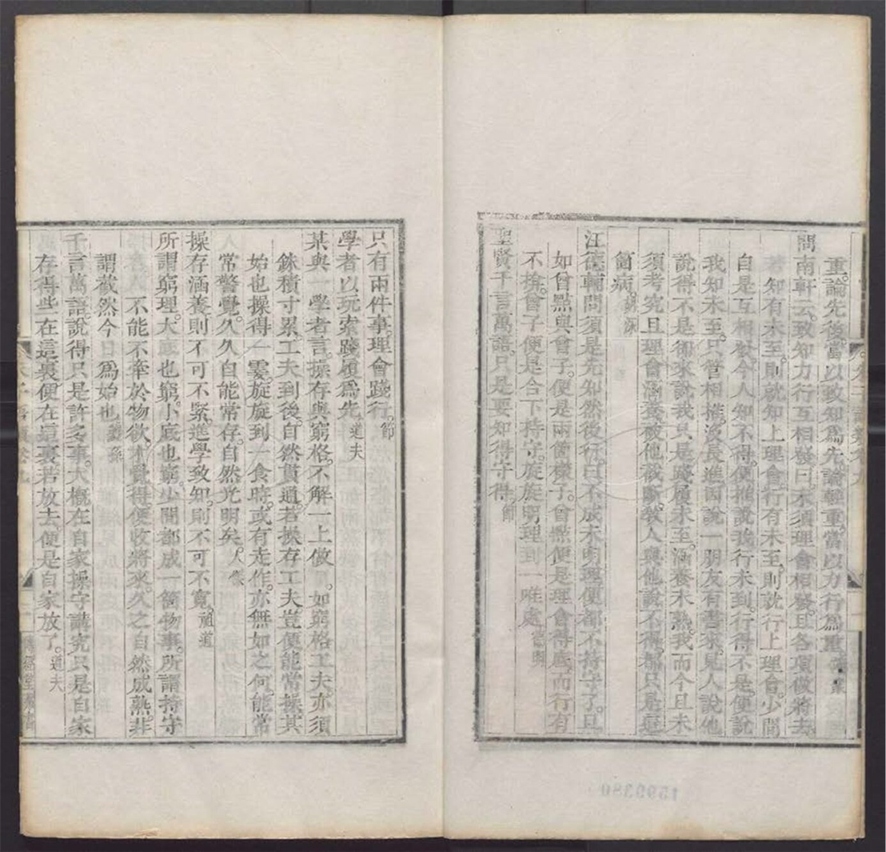 重論先後當以致知為先論輕重當以力行為重
問南軒云致知力行互相發曰未須理會相發且各項做將去
若知有未至則就知上理會行有未至則就行上理會少間
自是互相發今人知不得便推說我行未到行得不是便說
我知未至只管相推沒長進因說一朋友有書來見人說他
說得不是卻來說我只是踐履未至涵養未熟我而今且未
須考究且理會涵養被他截斷教人與他說不得都只是這
箇病
江德輔問須是先知然後行曰不成未明理便都不持守了且
如曾點與曾子便是兩箇樣子曾點便是理會得底而行有
不揜曾子便是合下持守旋旋明理到一唯處
聖賢千言萬語只是要知得守得節
只有兩件事理會踐行節
學者以玩索踐履為先道夫
某與一學者言操存與窮格不解一上做 如窮格工夫亦須
銖積寸累工夫到後自然貫通若操存工夫豈便能常操其
始也操得一霎旋旋到一食時或有走作亦無如之何能常
常警覺久久自能常存自然光明矣人傑
操存涵養則不可不緊進學致知則不可不寬祖道
所謂窮理大底也窮小底也窮少間都成一箇物事所謂持守
人不能不牽於物欲才覺得便收將來久之自然成熟非
謂截然今日為始也
千言萬語說得只是許多事大概在自家操守講究只是自家
存得些在這裏便在這裏若放去便是自家放了道夫